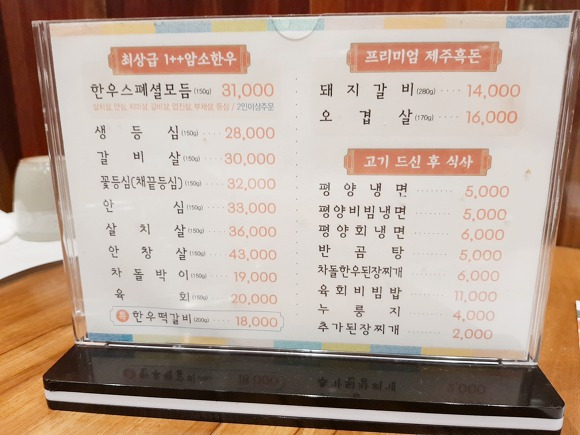 최상급 1++암소한우
한우스페셜모듬(150g) 31,000
살치살, 안심, 치마살, 갈비살, 업진살, 부채살, 등심 / 2인이상주문
생등심(150g) 28,000
갈비살(150g) 30,000
꽃등심(채끝등심)(150g) 32,000
안심(150g) 33,000
살치살(150g) 36,000
안창살(150g) 43,000
차돌박이(150g) 19,000
육회(150g) 20,000
한우떡갈비(200g) 18,000
프리미엄 제주흑돈
돼지갈비(280g) 14,000
오겹살(170g) 16,000
고기 드신 후 식사
평양냉면 5,000
평양비빔냉면 5,000
평양회냉면 6,000
반곰탕 5,000
차돌한우된장찌개 6,000
육회비빔밥 11,000
누룽지 4,000
추가된장찌개 2,000